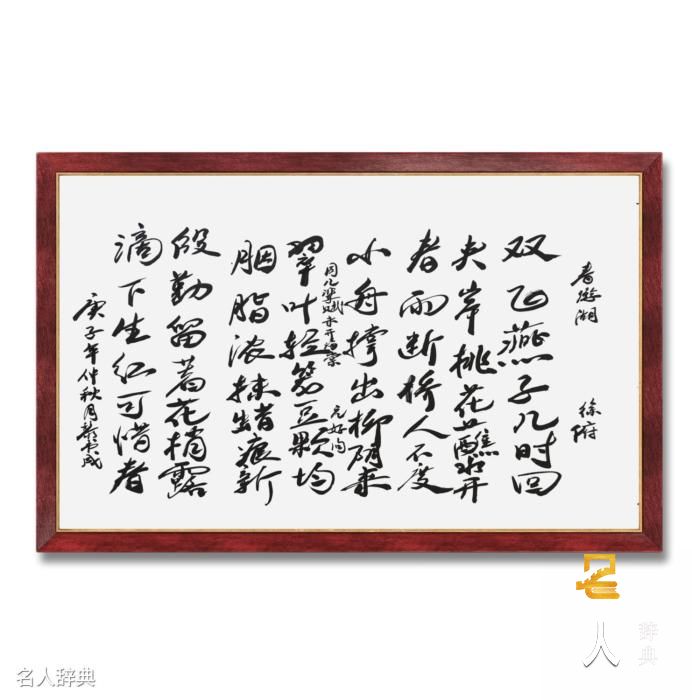 春游湖 徐俯
双飞燕子几时回
夹岸桃花蘸水开
春雨断桥人不度
小舟撑出柳阴来
同儿辈赋未开海棠 元好问
翠叶轻笼豆颗均
胭脂浓抹蜡痕新
殷勤留著花梢露
滴下生红可惜春
庚子年仲秋月
名人辞典
名人辞典